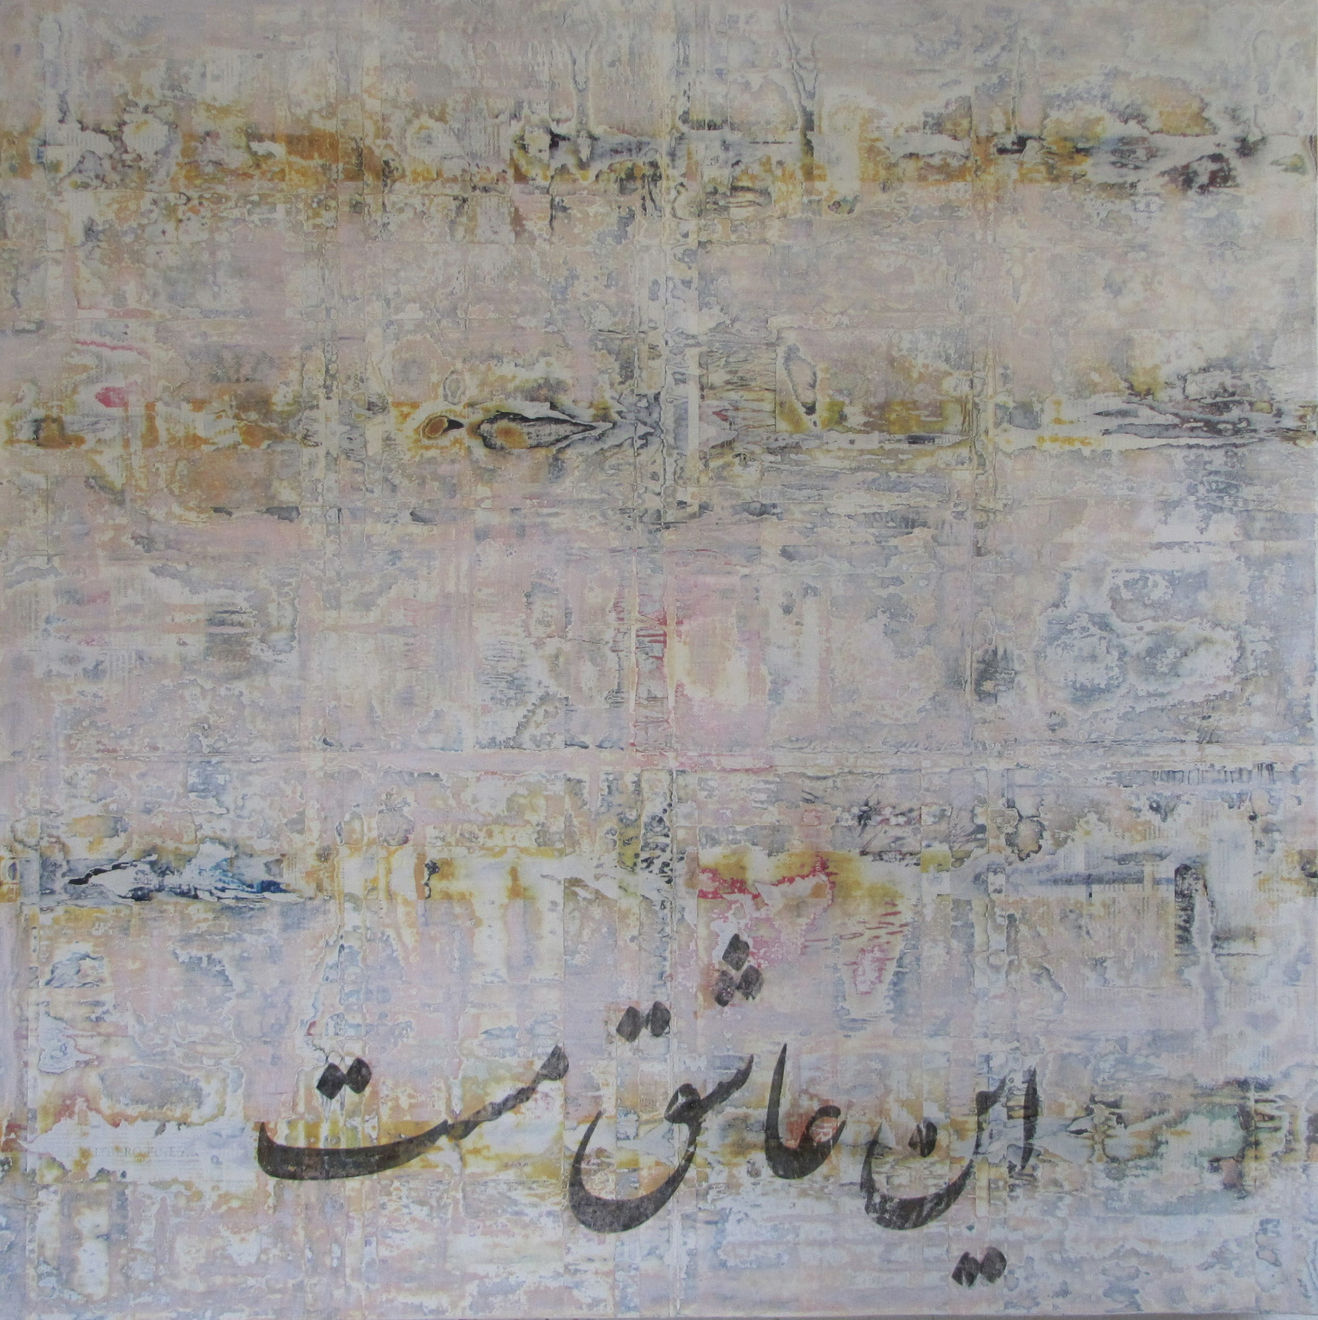 این عاشق مست